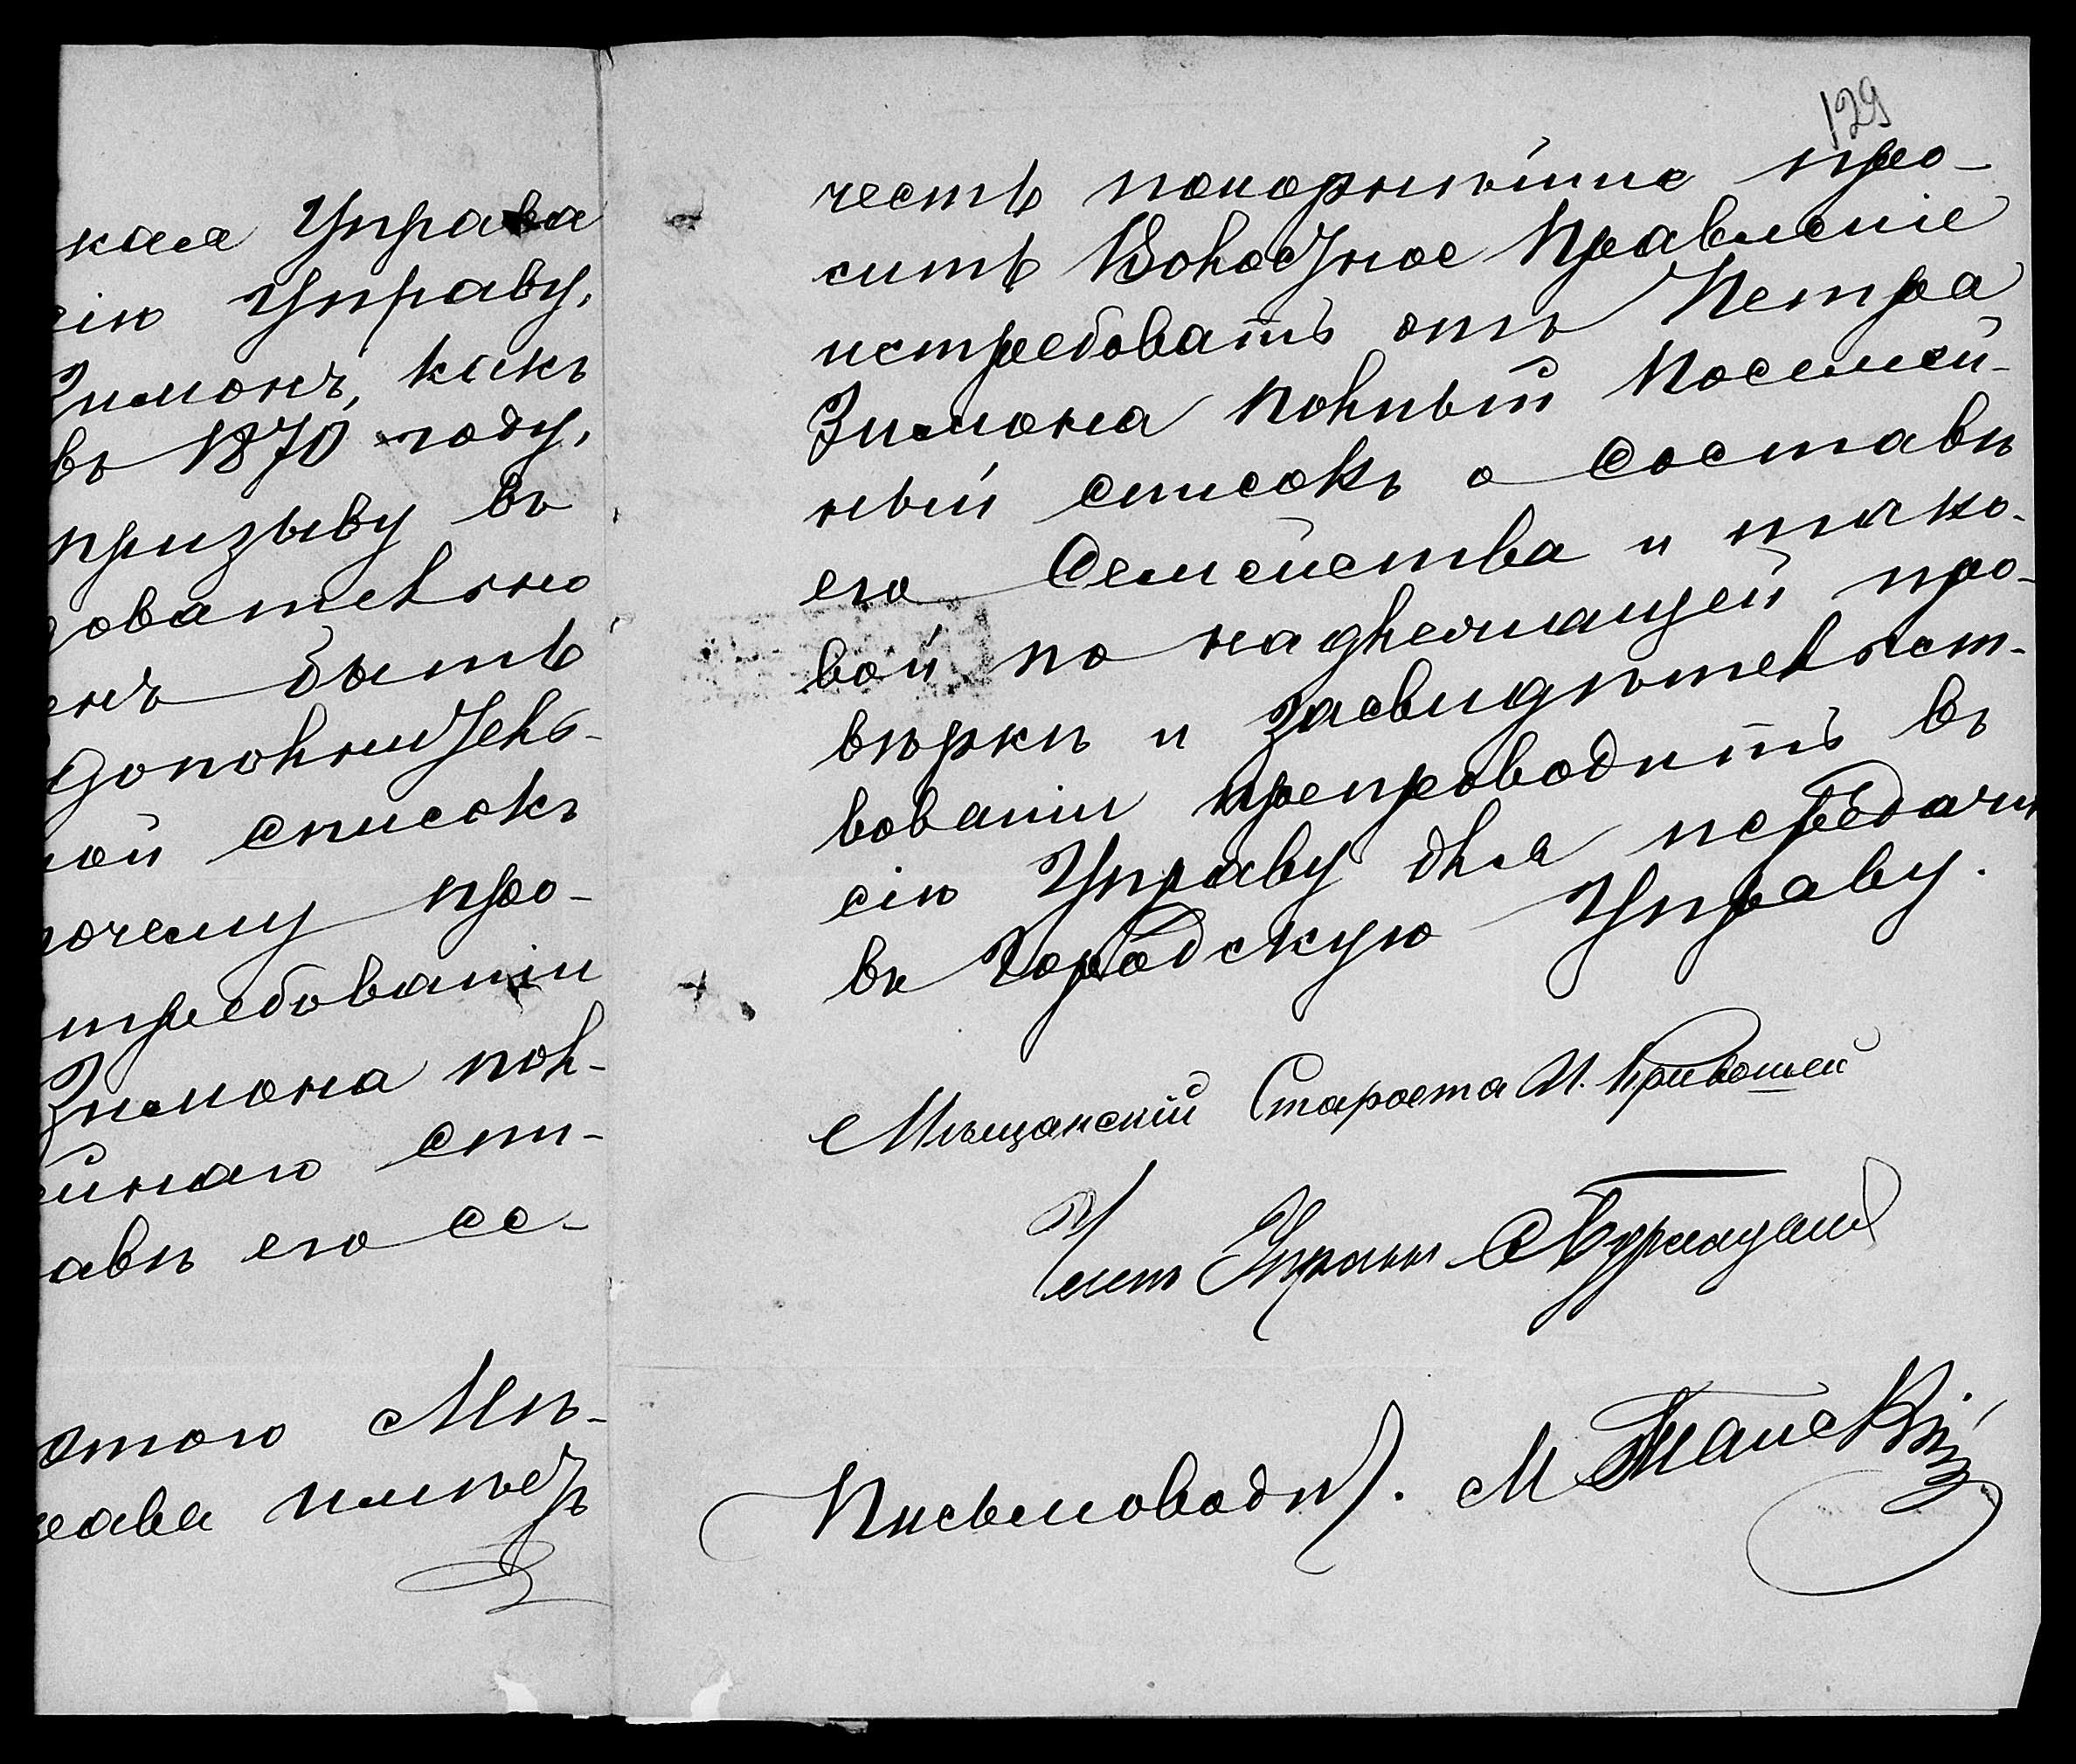 кая Управа
сію Управу,
Зимонъ, какъ
въ 1870 году,
призыву въ
довательно
енъ быть
дополнитель-
ной списокъ
почему про-
требованіи
Зимона пол-
ейнаго спи-
авѣ его се-
этого Мѣ-
рава имѣетъ
129
честь покорнѣйше про-
сить Волостное Правленіе
истребовать отъ Петра
Зимона полный посемей-
ный списокъ о составѣ
его семейства и тако-
вой по надлежащей про-
вѣркѣ и засвидѣтельст-
вованіи препроводить въ
сію Управу для передачи
въ Городскую Управу.
Мѣщанскій Староста И. Кривошей
Член Управы
Письмоводит. М